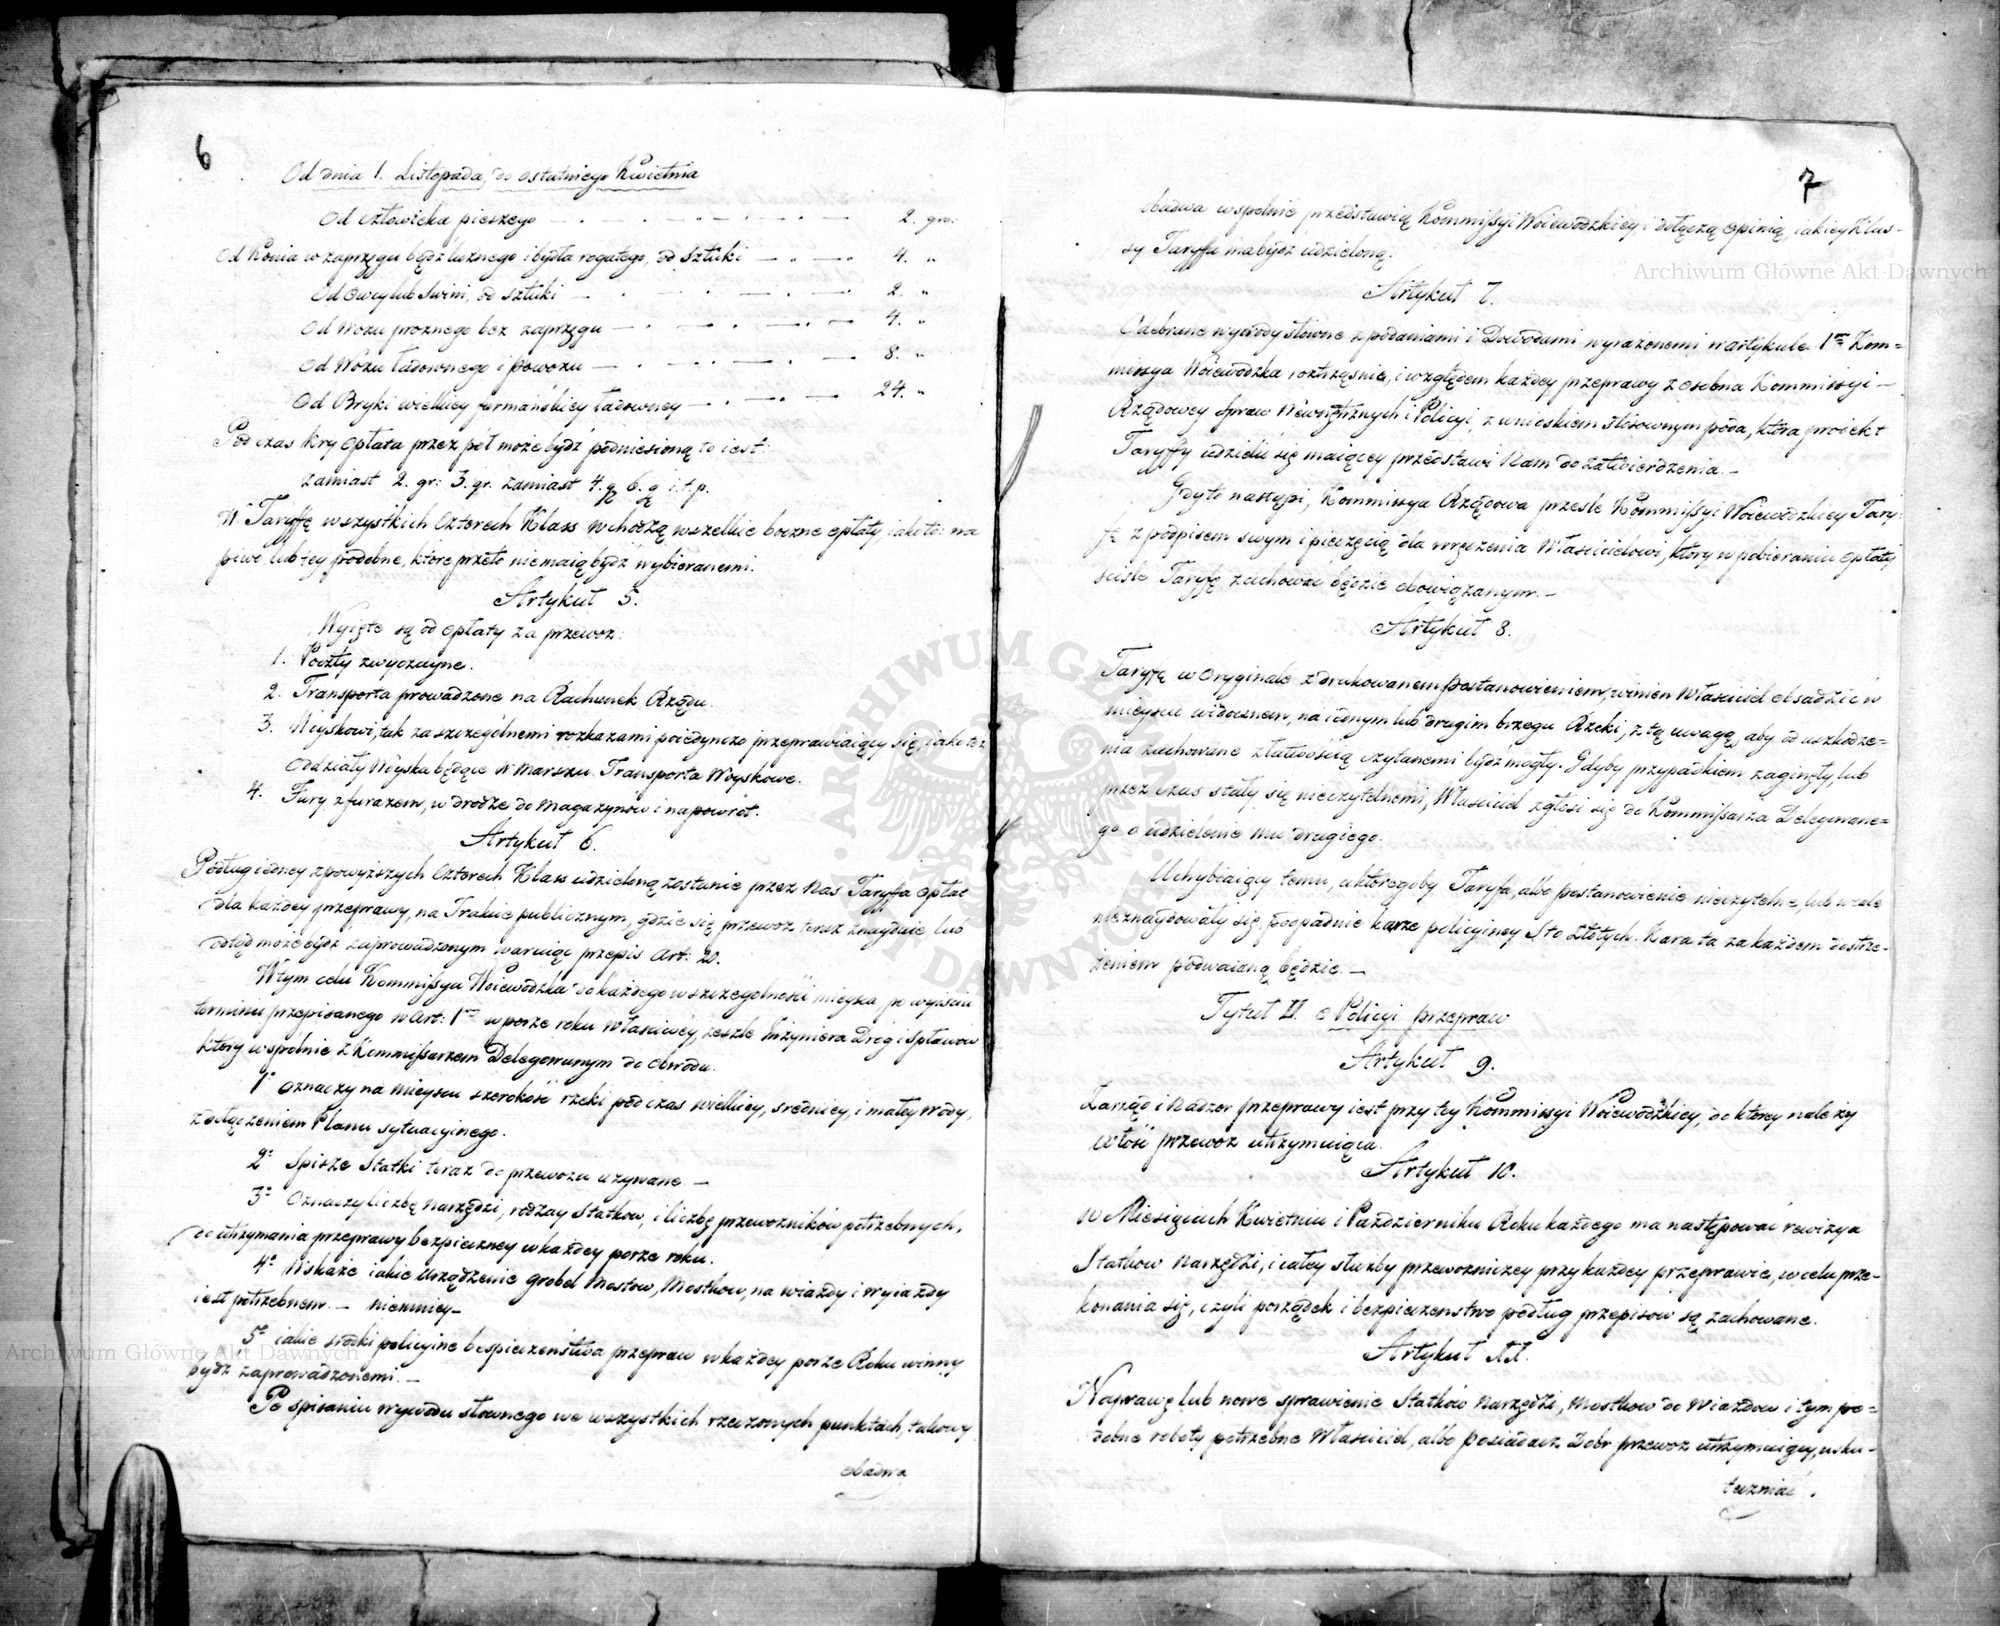 6
Od dnia 1. Listopada, do ostatniego Kwietnia
Od człowieka pieszego 2. gro:
Od Konia w zaprzęgu bądź luznego i bydła rogatego, od Sztuki 4. „
Od Owcy lub Swini, od sztuki 2. „
Od Wozu proznego bez zaprzęgu 4. „
Od Wozu ładownego i powozu 8. „
Od Bryki wielkiey furmańskiey ładowney 24. „
Pod czas kry opłata przez pół może bydź podniesioną to iest:
zamiast 2. gr: 3. gr. zamiast 4. g 6. g i.t.p.
W Taryffę wszystkich Czterech Klass wchodzą wszelkie boczne opłaty, iako to: na
piwo lub tey podobne, które przeto nie maią bydź wybieranemi.
Artykuł 5.
Wyięte są od opłaty za przewoz:
1. Poczty zwyczayne.
2. Transporta prowadzone na Rachunek Rządu.
3. Woyskowi, tak za szczególnemi rozkazami poiedynczo przeprawiaiący się, iako też
Oddziały Woyska będące w marszu. Transporta Woyskowe.
4. Fury z furażem, w drodze do Magazynów i napowrót.
Artykuł 6.
Podług iedney z powyższych Czterech Klass udzieloną zostanie przez Nas Taryffa opłat
dla każdey przeprawy, na Trakcie publicznym, gdzie się przewoz teraz znayduie lub
odtąd może bydź zaprowadzonym waruiąc przepis Art: 20.
W tym celu Kommissya Woiewodzka do każdego w szczegolności mieysca po wyiściu
terminu przepisanego w Art: 1m w porze roku właściwéy, zeszle Inżyniera Dróg i Spławów
który wspólnie z Kommissarzem Delegowanym do Obwodu.
1° Oznaczy na mieyscu szerokość rzeki pod czas wielkiey, sredniey, i małey wody,
z dołączeniem Planu sytuacyinego.
2° Spisze Statki teraz do przewozu uzywane —
3° Oznaczy liczbę narzędzi, rodzay Statkow, i liczbę przewoźników potrzebnych,
do utrzymania przeprawy bezpieczney w każdey porze roku.
4° Wskaże iakie urządzenie grobel Mostow, Mostkow, na wiazdy i wyiazdy
iest potrzebnem. — niemniey —
5° iakie srodki policyine bespieczeństwa przepraw w każdey porze Roku winny
bydź zaprowadzonemi. —
Po spisaniu wywodu słownego we wszystkich rzeczonych punktach, takowy
obadwa
7
obadwa wspolnie przedstawią Kommissyi Woiewodzkiey, i dołączą opinią, iakiey Klas-
sy Taryffa ma bydź udzieloną.
Artykuł 7.
Odebrane wywody słowne z podaniami i Dowodami wyrażonemi w artykule 1m Kom=
missya Woiewodzka roztrząsnie, i względem każdey przeprawy z osobna Kommissyi —
Rządowey Spraw Wewnętrznych i Policyi, z wnioskiem stosownym poda, która proiekt
Taryffy udzielić się maiącey przedstawi Nam do zatwierdzenia. —
Gdy to nastąpi, Kommissya Rządowa prześle Kommissyi Woiewodzkiey Tary-
fę z podpisem swym i pieczęcią dla wręczenia Właścicielowi, który w pobieraniu opłaty
scisle Taryfę zachować będzie obowiązanym. —
Artykuł 8.
Taryfę w Oryginale z drukowanem postanowieniem, winien Właściciel obsadzić w
mieyscu widocznem, na iednym lub drugim brzegu Rzeki, z tą uwagą, aby od uszkodze=
nia zachowane z łatwością czytanemi bydź mogły. Gdyby przypadkiem zaginęły, lub
przez czas stały się nieczytelnemi, Właściciel zgłosi się do Kommissarza Delegowane=
go o udzielenie mu drugiego.
Uchybiaiący temu, u którego by Taryfa, albo postanowienie nieczytelne, lub wcale
nieznaydowały się, podpadnie karze policyiney Sto Złotych. Kara ta za każdem dostrze-
żeniem podwaianą będzie. —
Tytuł II. o Policyi przepraw
Artykuł 9.
Zarząd i Dadzor przeprawy iest przy tey Kommissyi Woiewódzkiey, do ktorey należy
włość przewoz utrzymuiąca.
Artykuł 10.
W Miesiącach Kwietniu i Październiku Roku każdego ma następować rewizya
Statkow Narzędzi, i całey służby przewozniczey przy każdey przeprawie, w celu prze-
konania się, czyli porządek i bezpieczenstwo podług przepisów są zachowane.
Artykuł 11.
Naprawę lub nowe sprawienie Statków Narzędzi, Mostkow do wiazdow i tym po=
dobne roboty potrzebne Właściciel, albo posiadacz Dobr przewoz utrzymuiący, usku-
teczniać.
Archiwum Główne Akt Dawnych
Archiwum Główne Akt Dawnych
ARCHIWUM GŁÓWNE AKT DAWNYCH